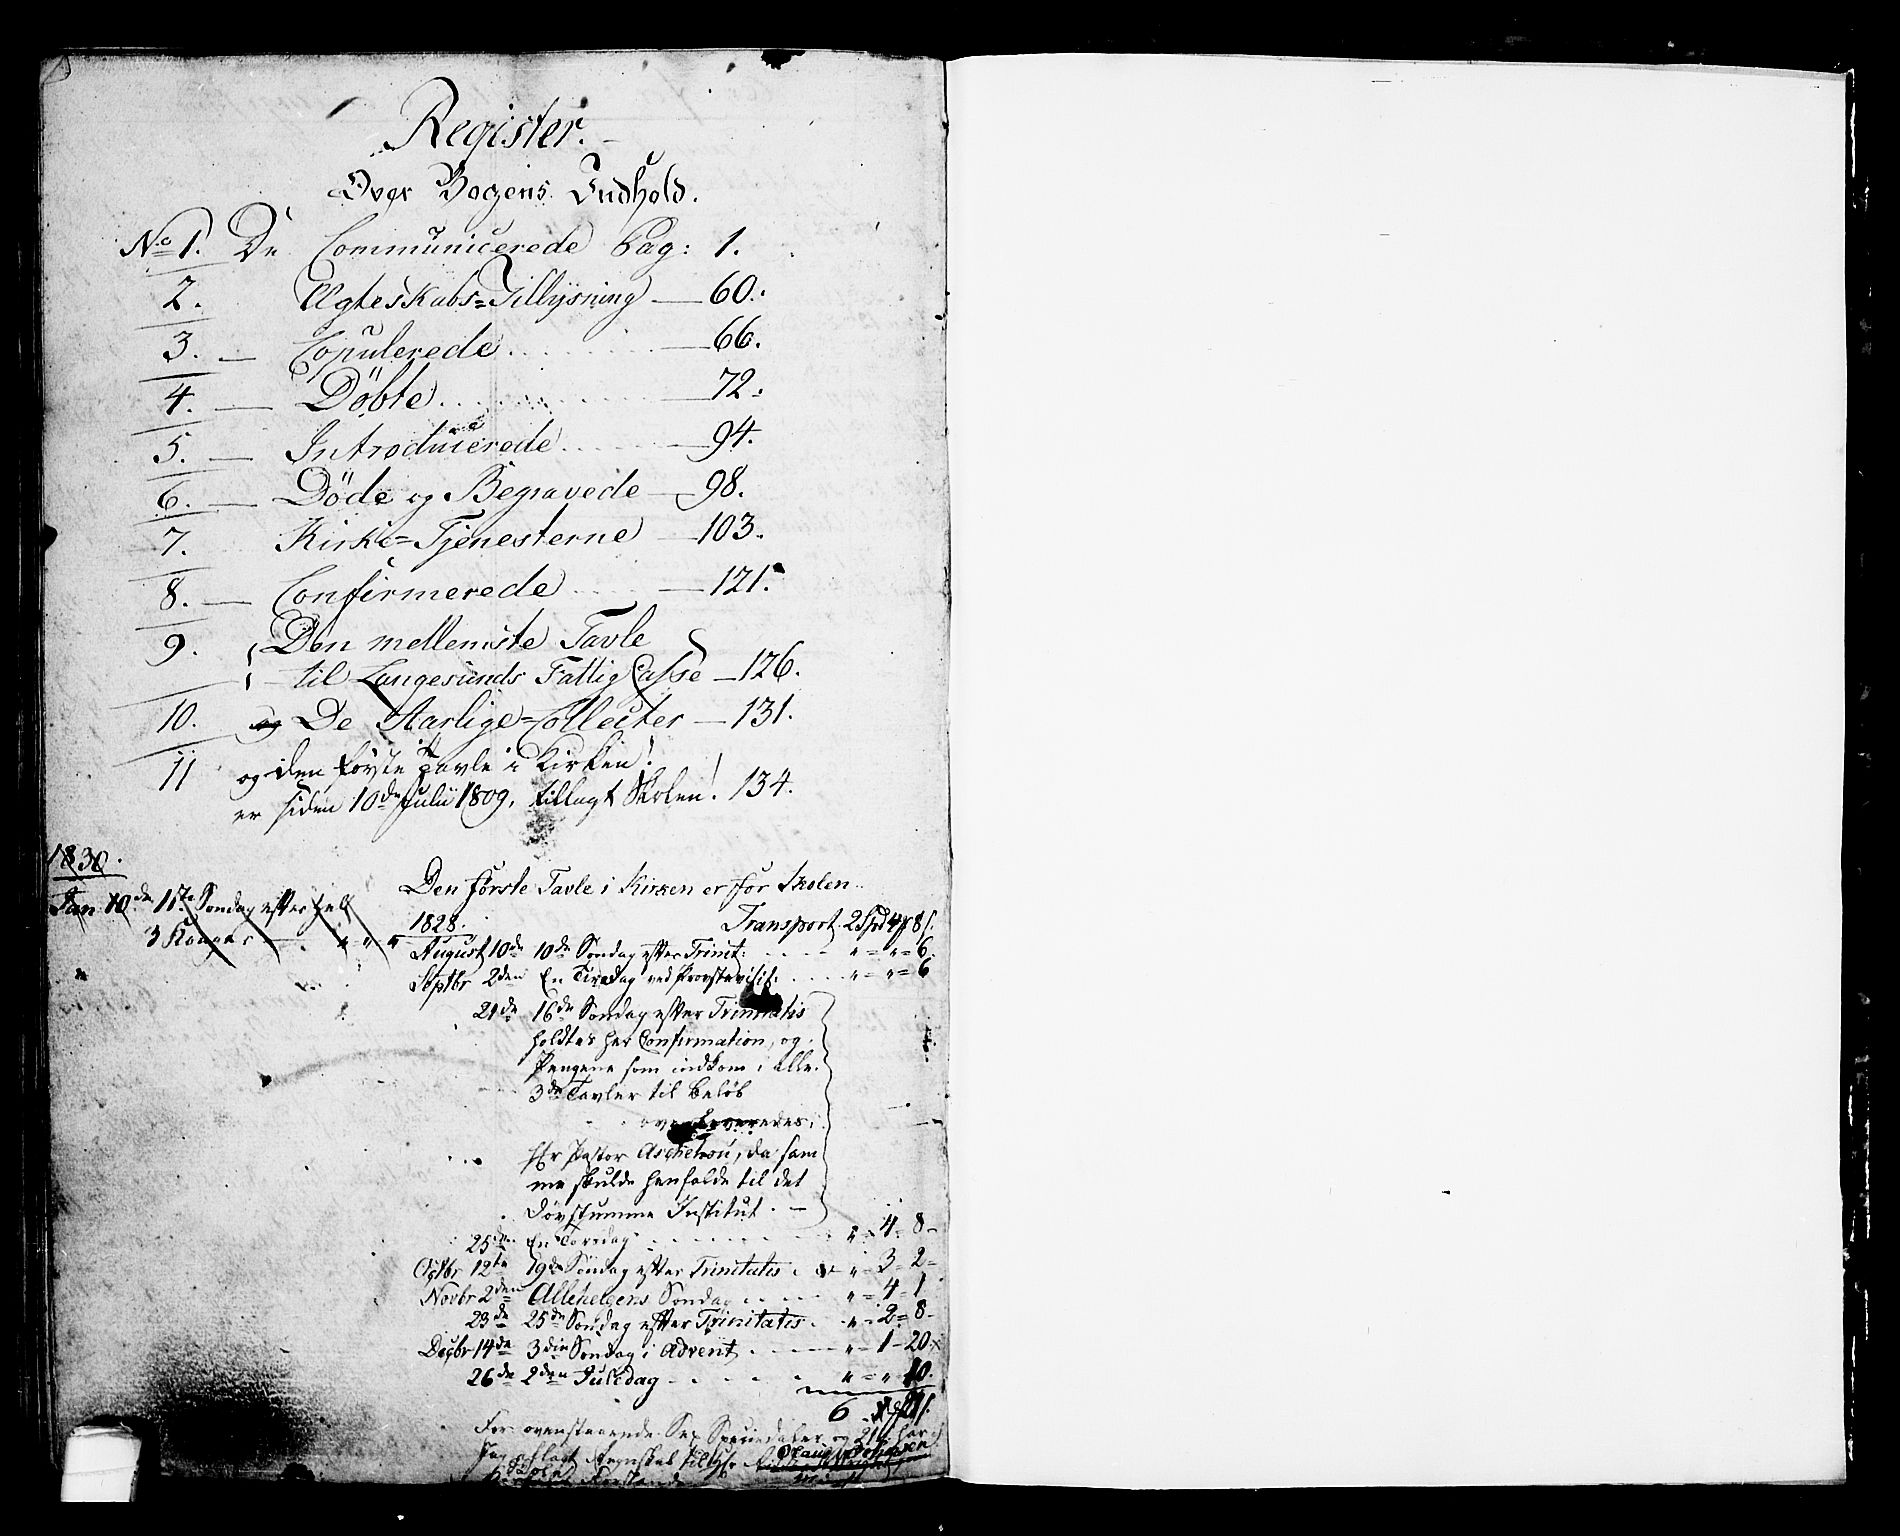 Register.
Over Bogens Indhold.
No 1. De Communicerede Pag: 1.
2. Ægteskabs=Tillysning — 60.
3. — Copulerede — 66.
4. — Döbte — 72.
5. — Introducerede — 94.
6. — Döde og Begravede — 98.
7. Kirke=Tjenesterne — 103.
8. — Confirmerede — 121.
9. Den mellemste Tavle
til Langesunds Fattig Casse — 126.
10. og De Aarlige=Collecter — 131.
11 og den første Tavle i Kirken!
er siden 10de Julii 1809, tillagt Skolen! 134.
1830.
Jan 10de 1ste Søndag efter hel
3 Konger
Den første Tavle i Kirken er for Skolen
1828. Transport. 2 Spd 4 8
August 10de 10de Søndag efter Trinit: " = " = 6.
Septbr 2den En Tirsdag ved Provstevisit: " = " = 6
21de 16de Søndag efter Trinitatis
holdtes her Confirmation, og
Pengene som indkom i alle
3de Tavler til Beløb
overleveredes
Hr Pastor Aschehou, da sam
me skulde henfalde til det
Døvstumme Institut. —
25de En Torsdag " = 4 = 8 –
Octbr 12te 19de Søndag efter Trinitatis " = 3 = 2 =
Novbr 2den Allehelgens Søndag " = 4 = 1
23de 25de Søndag efter Trinitatis " = 2 = 8 –
Decbr 14de 3die Søndag i Advent " – 1 – 20
26de 2den Juledag " = " 10.
6 21
For ovenstaaende Sex Speciedaler og 21 har
Jeg aflagt Regnskab til Hr